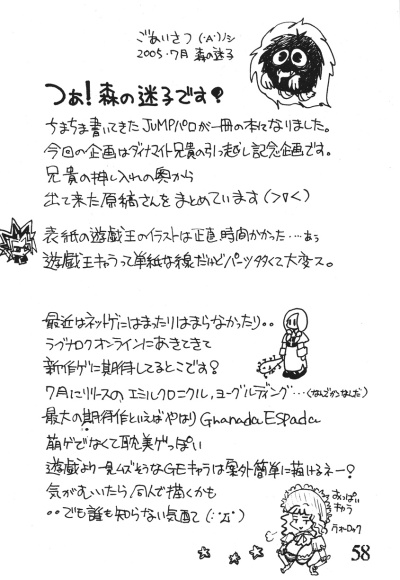 ごあいさつ (;´A`)ノシ
2005.7月 森の迷子
つあ!森の迷子です?
ちまちま書いてきたJUMPパロが一冊の本になりました。
今回の企画はダイナマイト兄貴の引っ越し記念企画です。
兄貴の押し入れの奥から
出て来た原稿さんをまとめています(>▽<)
表紙の遊戯王のイラストは正直時間かかった…ぁぅ
遊戯王キャラって単純な線だけどパーツ多くて大変っス。
最近はネットゲにはまったりはまらなかったり..
ラグナロクオンラインにあきてきて
新作ゲに期待してるとこです?
7月にリリースのエミルクロニクル,ヨーグルティング…(なんざかんなんだ)
最大の期待作といえばやはりGranadaESPada
萌ゲでなくて耽美ゲっぽい
遊戯より一見ムズそうなGEキャラは案外簡単に描けるネー?
気がむいたら同人で描くかも
..でも誰も知らない気配て(;´Д`)
おっぱい
きゅう
58